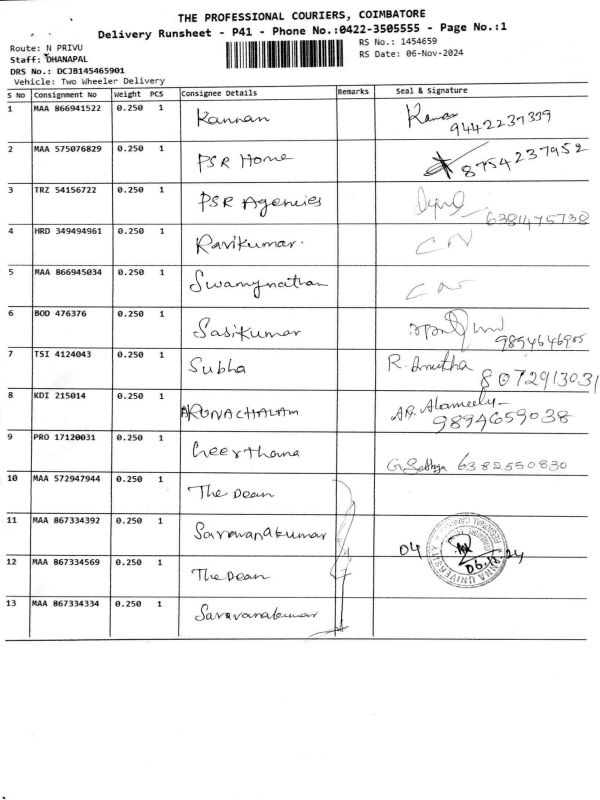 THE PROFESSIONAL COURIERS, COIMBATORE
Delivery Runsheet - P41 - Phone No.:0422-3505555 - Page No.:1
Route: N PRIVU
RS No.: 1454659
Staff: DHANAPAL
RS Date: 06-Nov-2024
DRS No.: DCJB145465901
Vehicle: Two Wheeler Delivery
S No Consignment No Weight PCS Consignee Details Remarks Seal & Signature
1 MAA 866941522 0.250 1 Kannan
9442237339
2 MAA 575076829 0.250 1 PSR Home 8754237952
3 TRZ 54156722 0.250 1 PSR Agencies 6381475738
4 HRD 349494961 0.250 1 Ravikumar. CN
5 MAA 866945034 0.250 1 Swamynathan CN
6 BOD 476376 0.250 1 Sasikumar
7 TSI 4124043 0.250 1 Subha R. Amutha
8072913031
8 KDI 215014 0.250 1 ARUNACHALAM AR. Alameelu
9894659038
9 PRO 17120031 0.250 1 Geerthana G. Sathya 6382550830
10 MAA 572947944 0.250 1 The Dean
11 MAA 867334392 0.250 1 Saravanakumar 04
12 MAA 867334569 0.250 1 The Dean
13 MAA 867334334 0.250 1 Saravanakumar